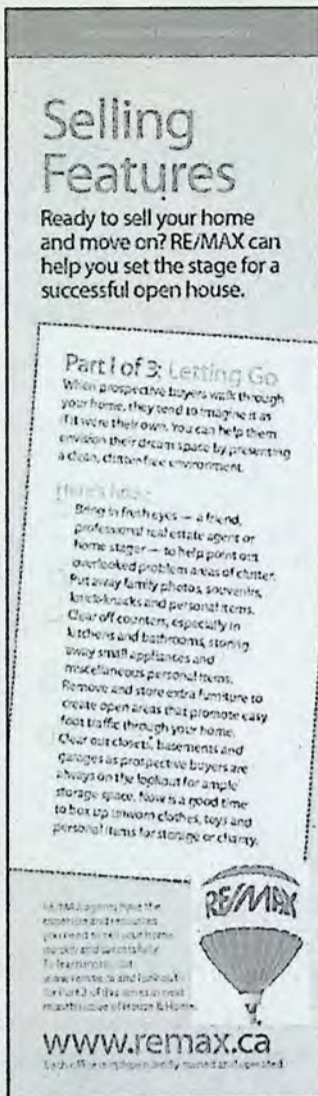 Selling
Features
Ready to sell your home
and move on? RE/MAX can
help you set the stage for a
successful open house.
Part 1 of 3: Letting Go
When prospective buyers walk through
your home, they tend to imagine it as
if it were their own. You can help them
envision their dream space by presenting
a clean, clutter-free environment.
Here's how:
Bring in fresh eyes — a friend,
professional real estate agent or
home stager — to help point out
overlooked problem areas of clutter.
Put away family photos, souvenirs,
knick-knacks and personal items.
Clear off counters, especially in
kitchens and bathrooms, storing
away small appliances and
miscellaneous personal items.
Remove and store extra furniture to
create open areas that promote easy
foot traffic through your home.
Clear out closets, basements and
garages as prospective buyers are
always on the lookout for ample
storage space. Now is a good time
to box up unworn clothes, toys and
personal items for storage or charity.
RE/MAX agents have the
expertise and resources
you need to sell your home
quickly and successfully.
To learn more, visit
www.remax.ca and look out
for Part 2 of this series in next
month's issue of House & Home.
RE/MAX
www.remax.ca
Each office is independently owned and operated.